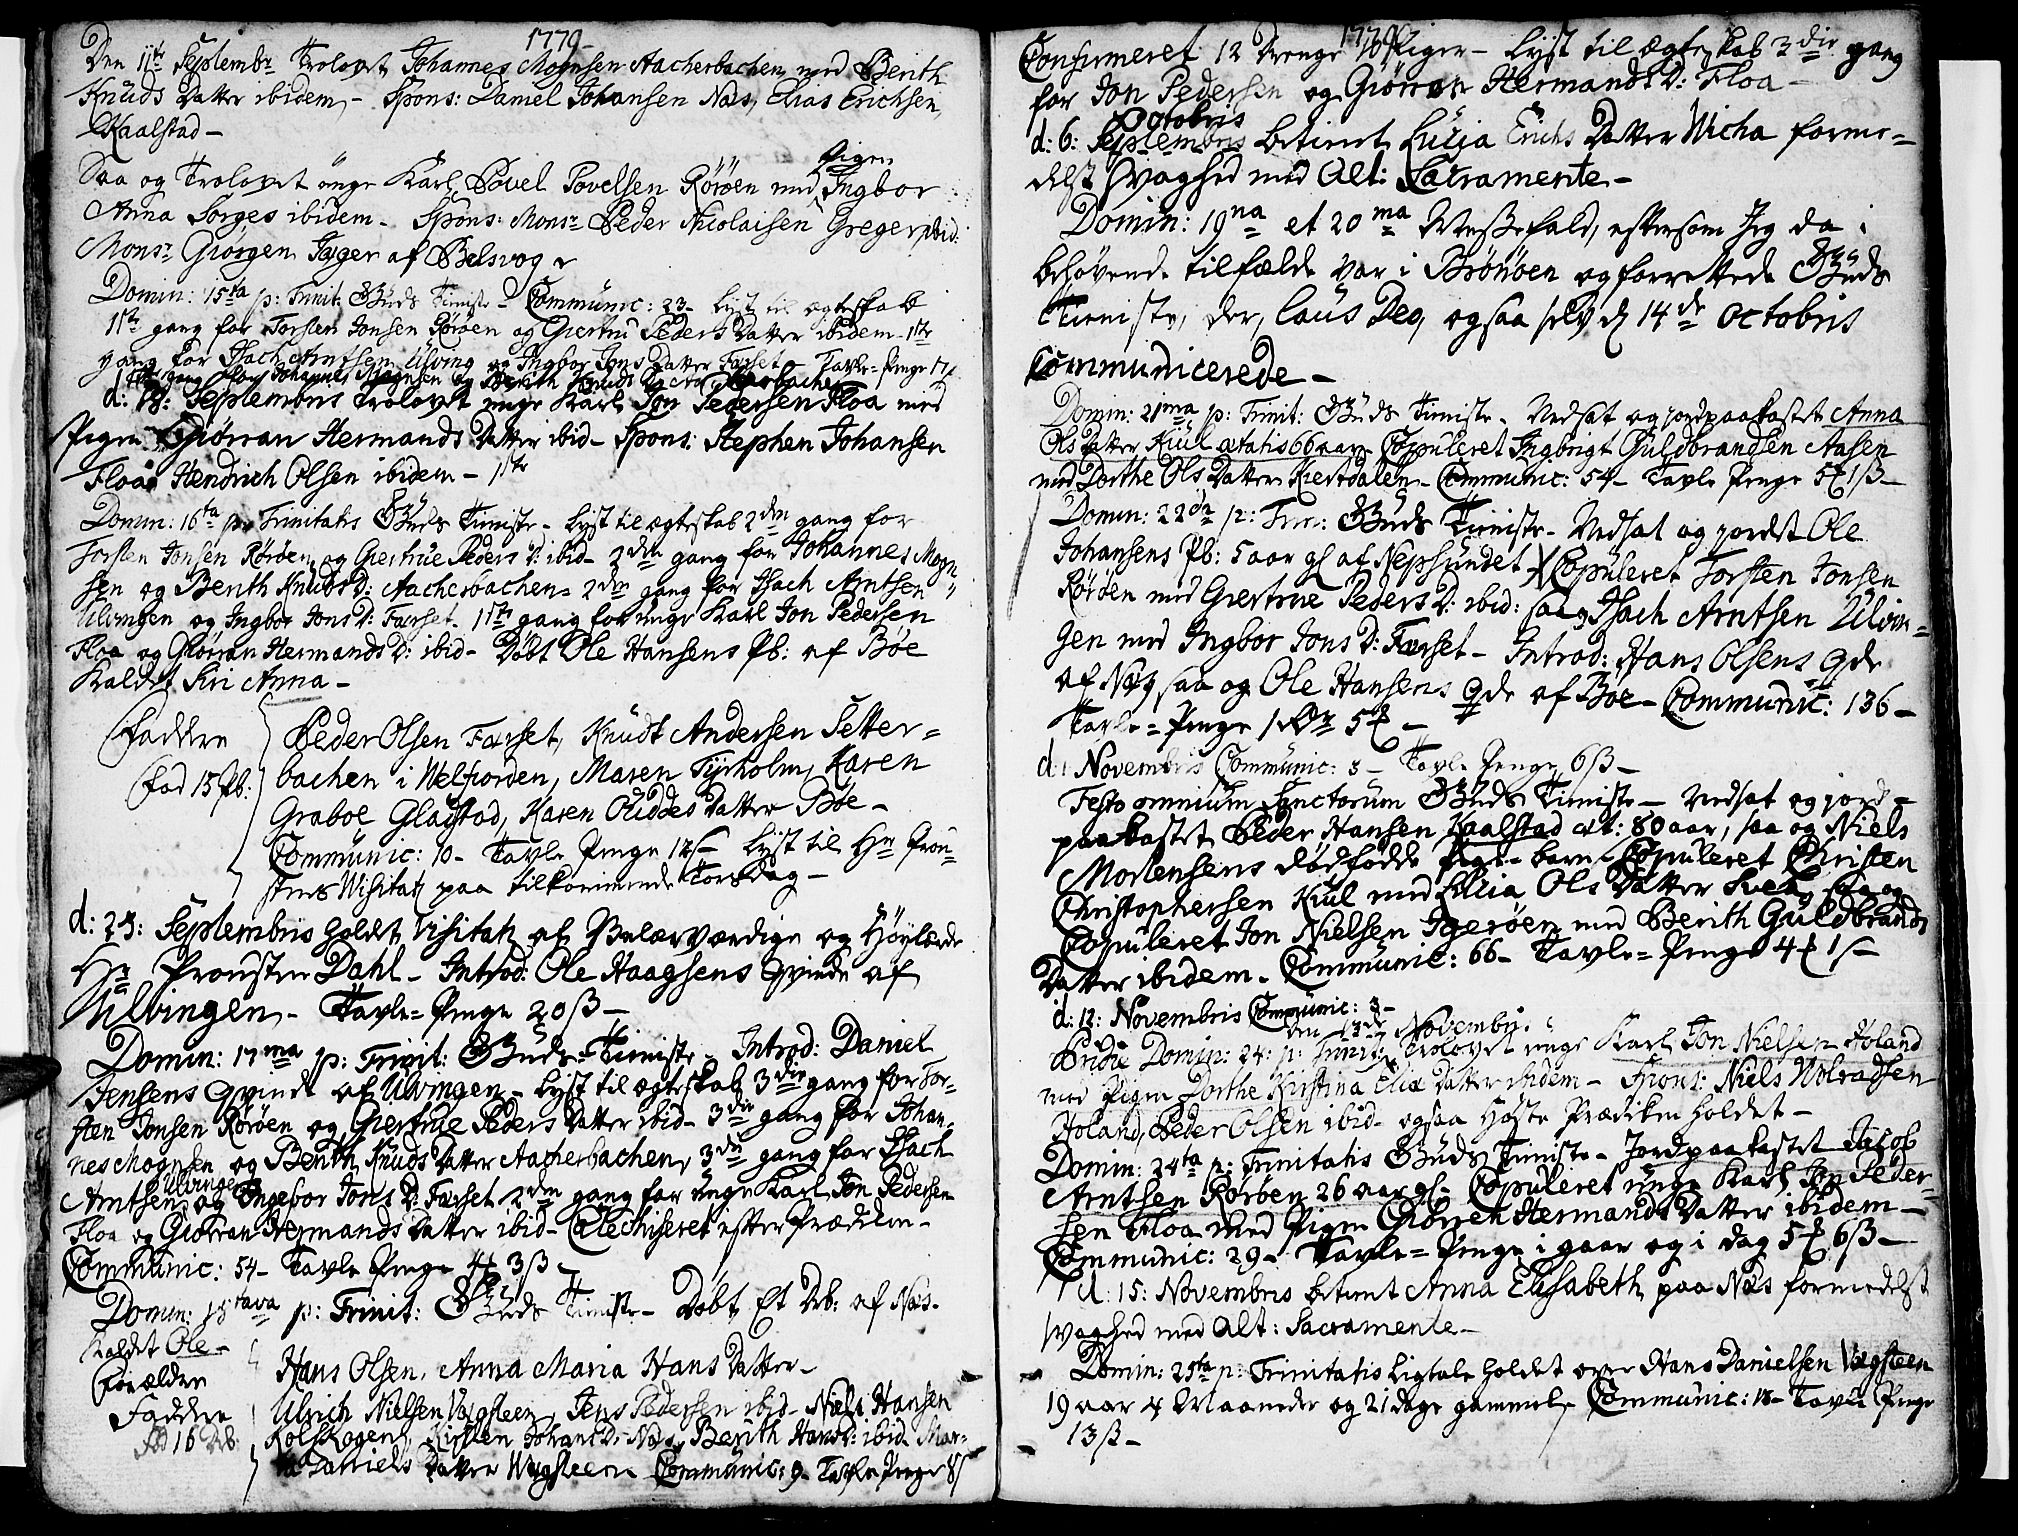 1779
Den 11te Septembr Trolovet Johannes Mognsen Aacherbachen med Berith
Knuds Datter ibidem - Spons: Daniel Johansen Næs, Elias Erichsen
Kaalstad -
Saa og Trolovet unge Karl Povel Povelsen Röröen med Pigen Ingbor
Anna Sorges ibidem - Spons: Monsr Peder Nicolaisen Greger ibid:
Monsr Giörgen Jæger af Belsvog
Domin: 15ta p: Trinit: Guds Tieniste - Communic: 23 - Lyst til ægteskab
1ste gang for Torsten Jonsen Röröen og Giertru Peders Datter ibidem - 1ste
gang for Isach Arntsen Ulving og Ingbor Jons Datter Forset - Tavle-Penge 17
1ste gang for Johannes Mognsen og Berith Knuds Datter Aacherbachen
d: 18: Septembris Trolovet unge Karl Jon Pedersen Floa med
Pigen Giörran Hermands Datter ibid - Spons: Stephen Johansen
Floa, Hendrich Olsen ibidem -
Domin: 16ta p: Trinitatis Guds Tieniste - Lyst til ægteskab 2den gang for
Torsten Jonsen Röröen og Giertrue Peders D: ibid - 2den gang for Johannes Mogn-
sen og Berith Knuds D: Aacherbachen - 2den gang for Isach Arntsen
Ulvingen og Ingbor Jons D: Forset - 1ste gang for unge Karl Jon Pedersen
Floa og Giörran Hermands D: ibid - Döbt Ole Hansens Pb: af Böe
Kaldet Siri Anna -
Faddere Peder Olsen Forset, Knudt Andersen Setter-
bachen i Welfiorden, Maren Tyrholm, Karen
Fød 13 Pb: Graboe Glagstad, Karen Oudes Datter Böe -
Communic: 10 - Tavle Penge 12 s - Lyst til Hr Prou-
stens Wisitatz paa tilkommende Torsdag -
d: 23: Septembris holdt Visitatz af Velærværdige og Höylærde
Hr Prousten Dahl - Introd: Ole Haagsens Qvinde af
Ulvingen - Tavle-Penge 20 ß -
Domin: 17ma p: Trinit: Guds-Tieniste - Introd: Daniel
Jensens Qvinde af Ulvingen - Lyst til ægteskab 3die gang for Tor-
sten Jonsen Röröen og Giertrue Peders Datter ibid - 3die gang for Johan-
nes Mognsen og Berith Knuds Datter Aacherbachen, 3die gang for Isach
Arntsen Ulvingen og Ingebor Jons D: Forset 2den gang for unge Karl Jon Pedersen
Floa og Giörran Hermands Datter ibid - Catechiseret efter Prædiken -
Communic: 54 - Tavle Penge 4 3 ß -
Domin: 18tava p: Trinit: Guds Tieniste - Döbt Et Db: af Næs -
Kaldet Ole -
Forældre Hans Olsen, Anna Maria Hans Datter -
Faddere Ulrich Nielsen Vægsteen, Jens Pedersen ibid - Niels Hansen
Fød 16 Db: Kolskogen, Kirsten Johans D: Næs, Berith Hans D: ibid - Mar-
Daniels Datter Wegsteen - Communic: 9 - Tavle Penge 8
1779
Confirmeret 12 Drenge 10 Piger - Lyst til Ægteskab 3die gang
for Jon Pedersen og Giörran Hermands D: Floa -
d: 6: Septembris Octobris betient Lucia Erichs Datter Wicha forme-
delst Svaghed med Alt: Sacramente -
Domin: 19na et 20ma Messefald, eftersom Jeg da i
behövende tilfælde var i Brönöen og forrettede Guds
Tieniste, der, Laus Deo, ogsaa selv d 14de Octobris
Communicerede -
Domin: 21ma p: Trinit: Guds Tieniste - Nedsat og jordpaakastet Anna
Ols Datter Kiul ætatis 66 aar - Copuleret Ingbrigt Guldbrandsen Aasen
med Dorthe Ols Datter Kiertdalen - Communic: 54 - Tavle Penge 5 1 ß -
Domin: 22de p: Trin: Guds Tieniste - Nedsat og jordet Ole
Johansens Pb: 5 aar gl af Nepsundet - Copuleret Torsten Jonsen
Röröen med Giertrue Peders D: ibid: saa og Isach Arntsen Ulvin-
gen med Ingbor Jons D: Forset - Introd: Hans Olsens Qde
af Næs, saa og Ole Hansens Qde af Böe - Communic: 136 -
Tavle-Penge 1 Or 5 -
d: Novembris Communic: 3 - Tavle Penge 6 ß -
Festo omnium Sanctorum Guds Tieniste - Nedsat og jord-
paakastet Peder Hansen Kaalstad æt: 80 aar, saa og Niels
Mortensens dödfödde Pige-barn - Copuleret Christen
Christophersen Kiul med Lucia Ols Datter saa og
Copuleret Jon Nielsen Igeröen med Berith Guldbrands
Datter ibidem - Communic: 66 - Tavle-Penge 4 1 s -
d: 12: Novembris Communic: 3 -
den 13de Novembris
Pridie Domin: 24: p: Trinit: Trolovet unge Karl Jon Nielsen Holand
med Pigen Dorthe Kirstina Eliæ Datter ibidem - Spons: Niels Wolradsen
Holand, Peder Olsen ibid - ogsaa Höste Prædiken holdet -
Domin: 24ta p: Trinitatis Guds Tieniste - Jordpaakastet Jacob
Arntsen Röröen 26 aar gl - Copuleret unge Karl Jon Peder-
sen Floa med Pigen Giörren Hermands Datter ibidem -
Communic: 29 - Tavle-Penge i gaar og i dag 5 6 ß -
d: 15: Novembris betient Anna Elisabeth paa Næs formedelst
Svaghed med Alt: Sacramente -
Domin: 25ta p: Trinitatis Ligtale holdet over Hans Danielsen Vægsteen
19 aar 4 Maaneder og 21 dage gammel - Communic: 18 - Tavle Penge
13 ß -